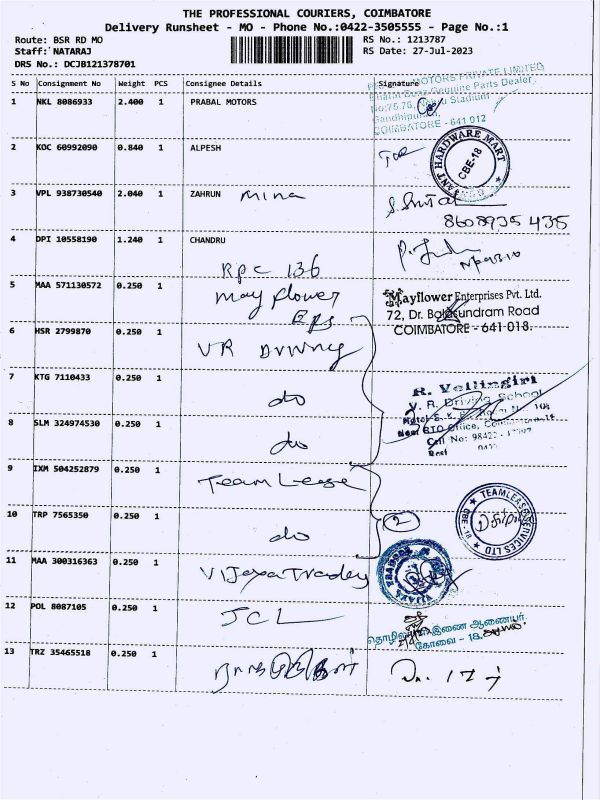 THE PROFESSIONAL COURIERS, COIMBATORE
Delivery Runsheet - MO - Phone No.:0422-3505555 - Page No.:1
Route: BSR RD MO
RS No.: 1213787
Staff: NATARAJ
RS Date: 27-Jul-2023
DRS No.: DCJB121378701
S No Consignment No Weight PCS Consignee Details Signature
MOTORS PRIVATE LIMITED
Genuine Parts Dealer,
1 NKL 8086933 2.400 1 PRABAL MOTORS
No:75,76, Nehru Stadium
Gandhipuram,
COIMBATORE - 641 012
2 KOC 60992090 0.840 1 ALPESH
HARDWARE MART
CBE-18
3 VPL 938730540 2.040 1 ZAHRUN Mina
8608935435
4 DPI 10558190 1.240 1 CHANDRU
RPC 136
5 MAA 571130572 0.250 1 May flower
Mayflower Enterprises Pvt. Ltd.
72, Dr. Balasundram Road
COIMBATORE - 641 018.
6 HSR 2799870 0.250 1 VR
7 KTG 7110433 0.250 1 do
R. Vellingiri
V. R. Driving School
RTO Office,
Cell No: 98422
8 SLM 324974530 0.250 1 do
9 IXM 504252879 0.250 1 Team Lease
TEAMLEASE SERVICES LTD
10 TRP 7565350 0.250 1 do
2
11 MAA 300316363 0.250 1 Vijaya Tradey
12 POL 8087105 0.250 1 JCL
இணை ஆணையர்
கோவை - 18.
13 TRZ 35465518 0.250 1